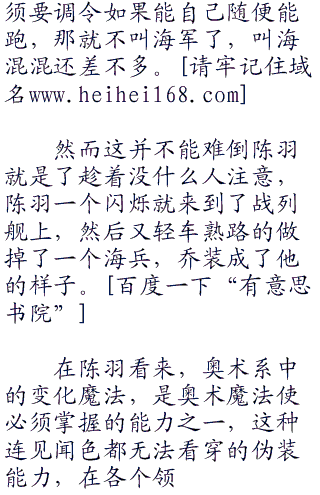 须要调令如果能自己随便能
跑，那就不叫海军了，叫海
混混还差不多。[请牢记住域
名www.heihei168.com]
然而这并不能难倒陈羽
就是了趁着没什么人注意，
陈羽一个闪烁就来到了战列
舰上，然后又轻车熟路的做
掉了一个海兵，乔装成了他
的样子。[百度一下“有意思
书院”]
在陈羽看来，奥术系中
的变化魔法，是奥术魔法使
必须掌握的能力之一，这种
连见闻色都无法看穿的伪装
能力，在各个领